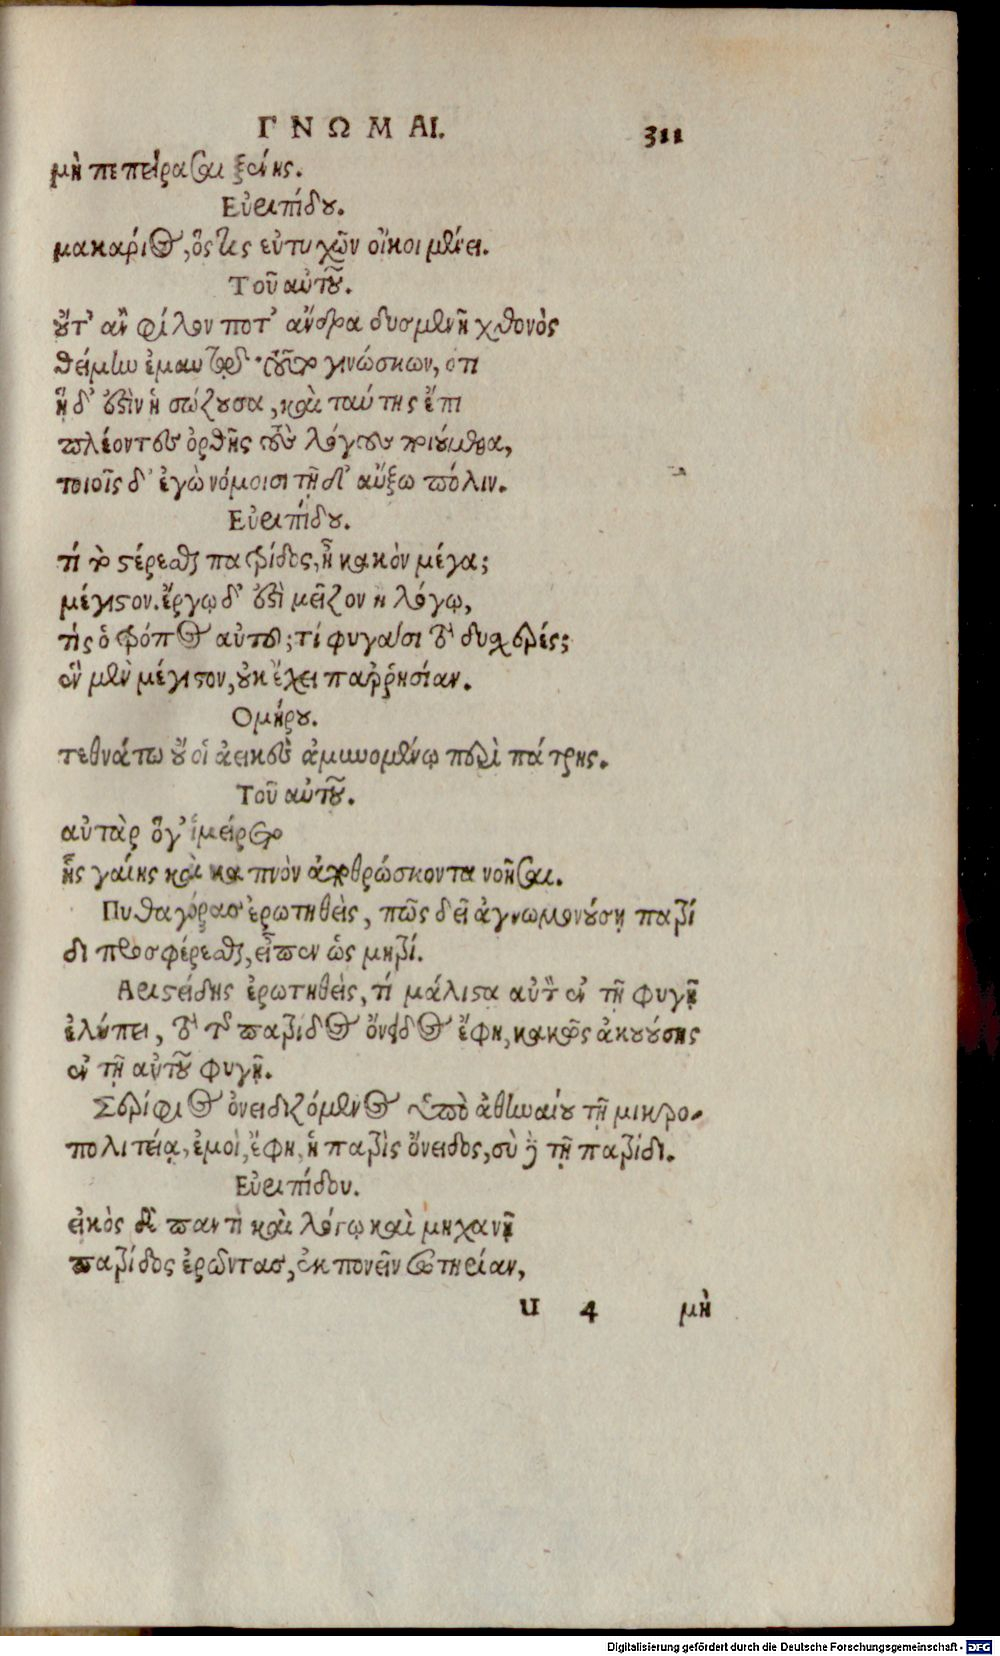 ΓΝΩΜΑΙ. 311
μὴ πεπείραται ξένης.
Εὐριπίδου.
μακάριος, ὅστις εὐτυχῶν οἴκοι μένει.
Τοῦ αὐτοῦ.
οὔτ' ἂν φίλον ποτ' ἄνδρα δυσμενῆ χθονὸς
θείμην ἐμαυτῷ· τοῦτο γινώσκων, ὅτι
ἥδ' ἐστὶν ἡ σώζουσα, καὶ ταύτης ἔπι
πλέοντες ὀρθῆς τοὺς λόγους ποιούμεθα,
τοιοῖςδ' ἐγὼ νόμοισι τήνδ' αὔξω πόλιν.
Εὐριπίδου.
τί τὸ στέρεσθαι πατρίδος, ἦ κακὸν μέγα;
μέγιστον. ἔργῳ δ' ἐστὶ μεῖζον ἢ λόγῳ,
τίς ὁ τρόπος αὐτοῦ; τί φυγάσι τὸ δυσχερές;
ἓν μὲν μέγιστον, οὐκ ἔχει παῤῥησίαν.
Ομήρου.
τεθνάτω οὔ οἱ ἀεικὲς ἀμυνομένῳ περὶ πάτρης.
Τοῦ αὐτοῦ.
αὐτὰρ ὅγ' ἱμείρετο
ἧς γαίης καὶ καπνὸν ἀποθρώσκοντα νοῆσαι.
Πυθαγόρας ἐρωτηθεὶς, πῶς δεῖ ἀγνωμονούσῃ πατρί
δι προσφέρεσθαι, εἶπεν ὡς μητρί.
Αριστείδης ἐρωτηθεὶς, τί μάλιστα αὐτὸν ἐν τῇ φυγῇ
ἐλύπει, τὸ τῆς πατρίδος ὄνειδος ἔφη, κακῶς ἀκουούσης
ἐν τῇ αὐτοῦ φυγῇ.
Σερίφιος ὀνειδιζόμενος ὑπὸ ἀθηναίου τῇ μικρο-
πολιτείᾳ, ἐμοὶ, ἔφη, ἡ πατρὶς ὄνειδος, σὺ δὲ τῇ πατρίδι.
Εὐριπίδου.
εἰκὸς δὲ παντὶ καὶ λόγῳ καὶ μηχανῇ
πατρίδος ἐρῶντας, ἐκπονεῖν σωτηρίαν,
u 4 μὴ
Digitalisierung gefördert durch die Deutsche Forschungsgemeinschaft - DFG